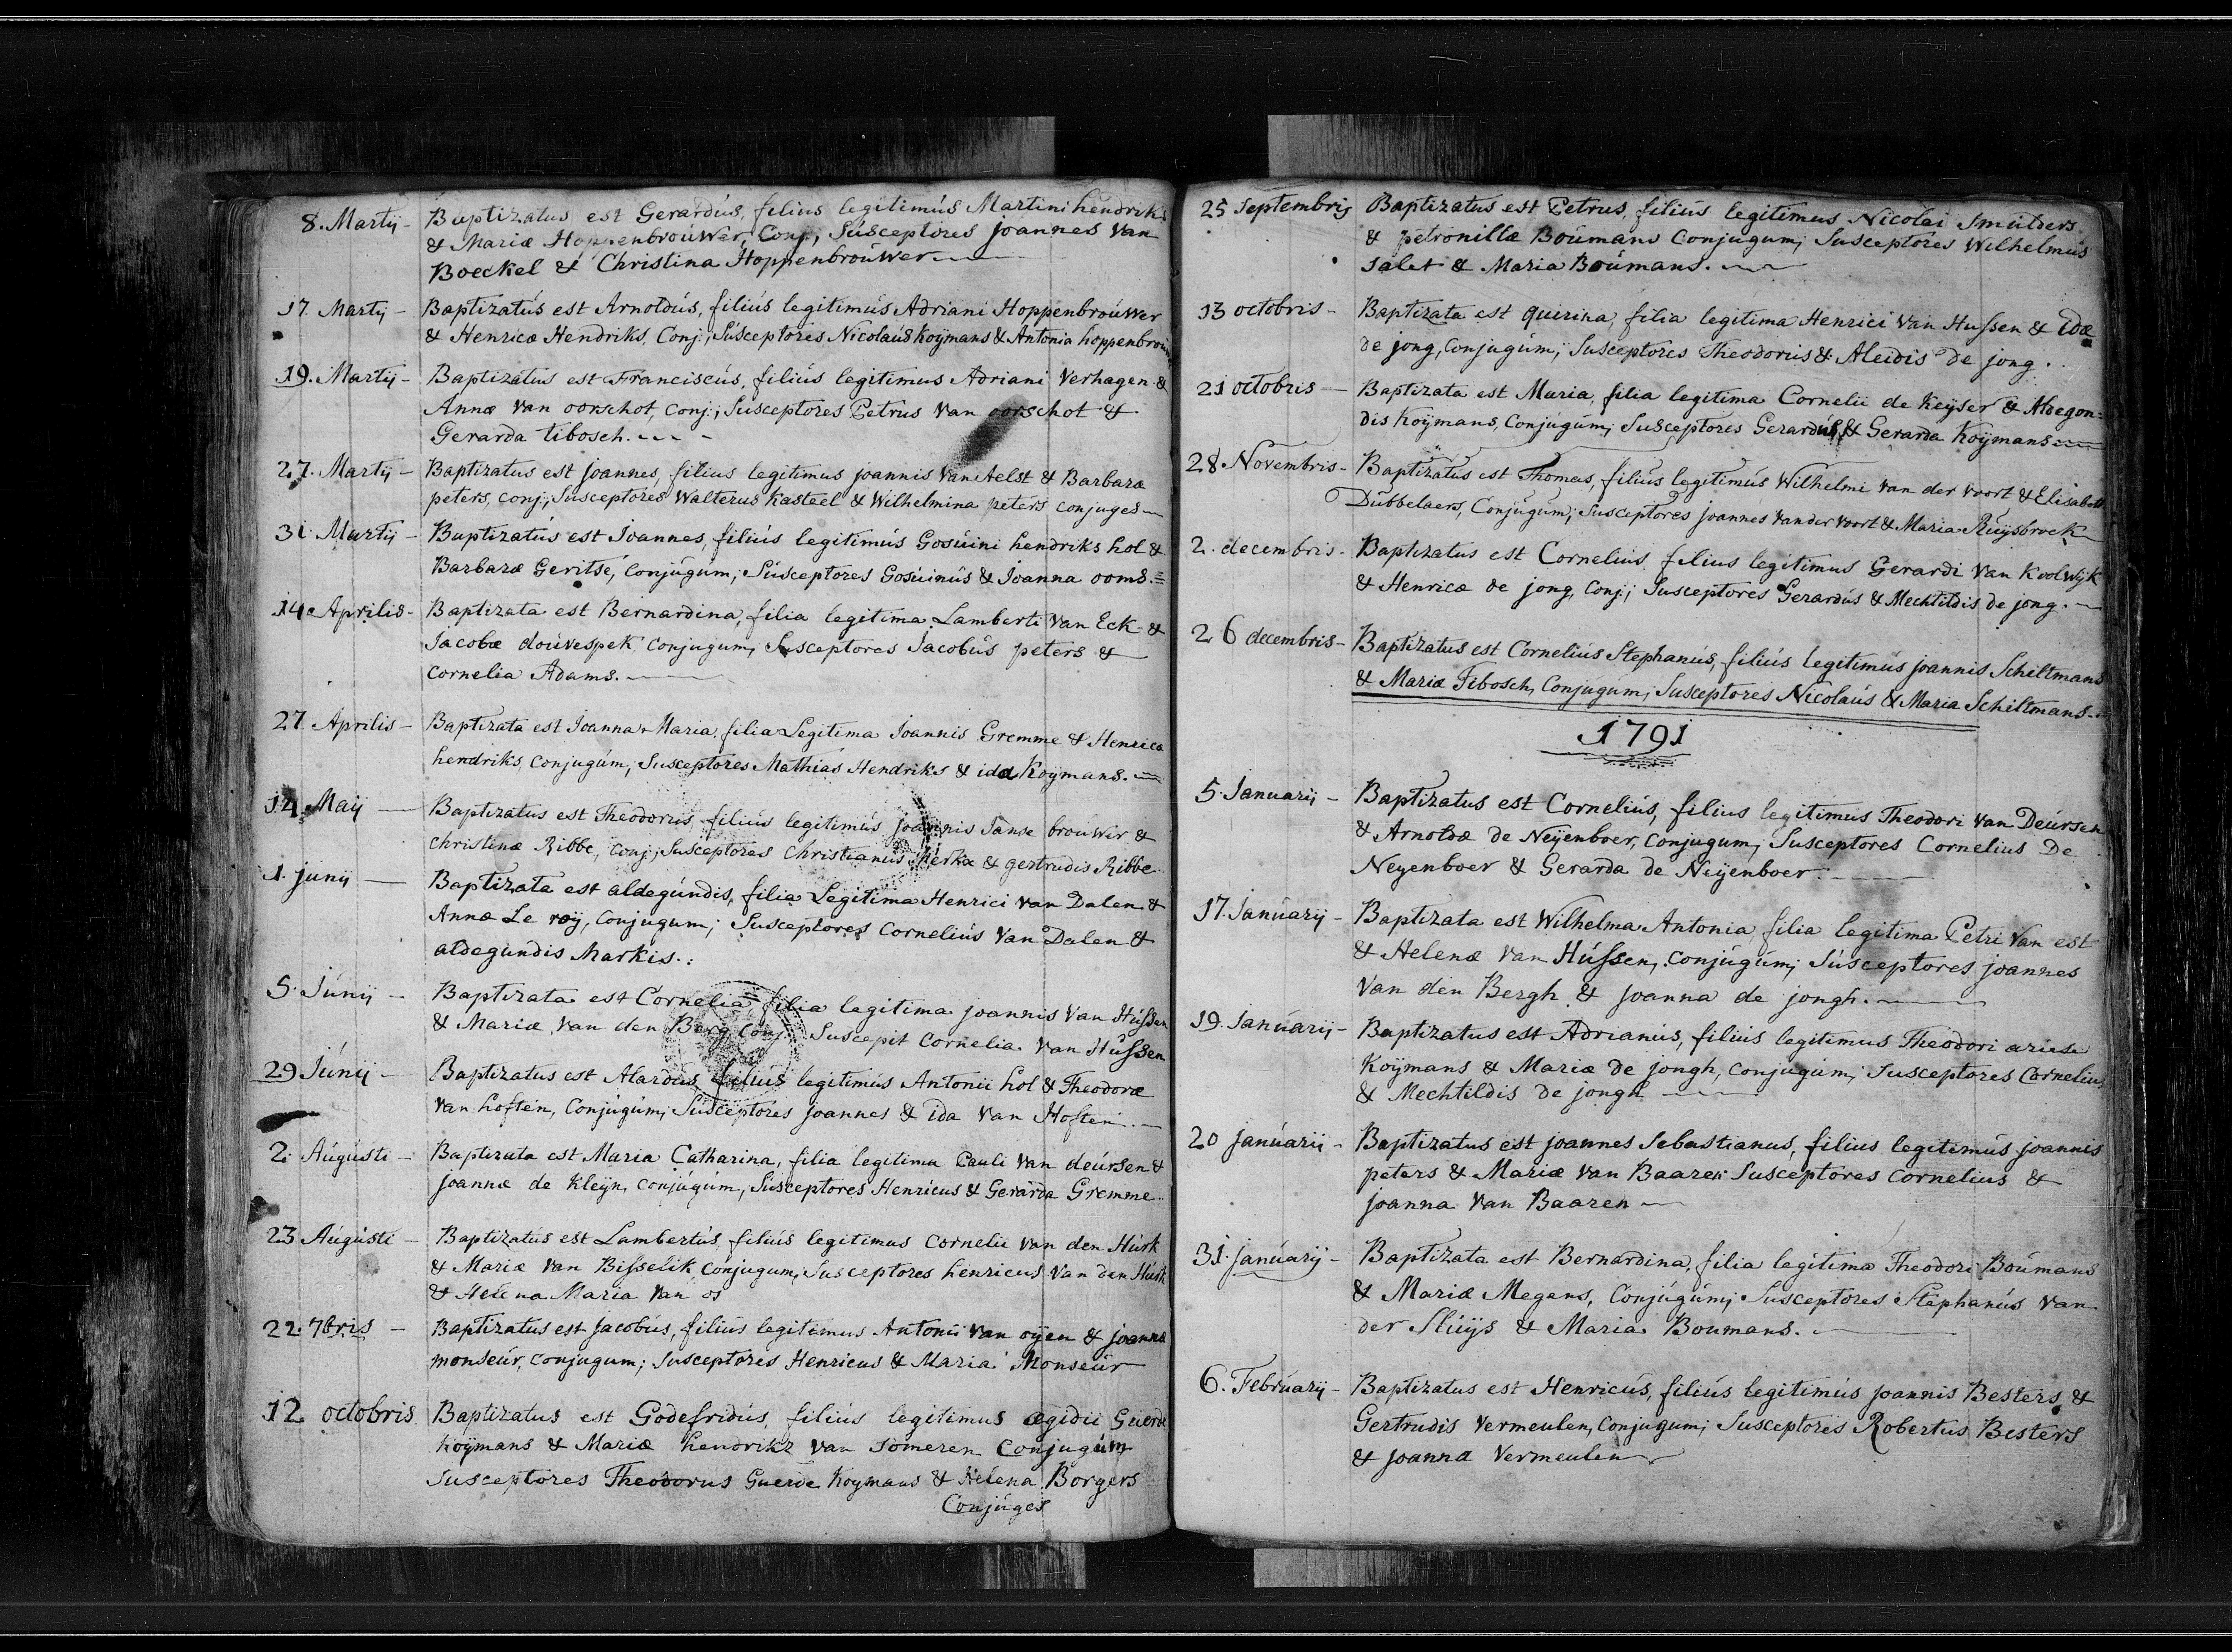 8. Martij - Baptizatus est Gerardús, filius legitimús Martini hendriks
& Mariæ Hoppenbroúwer, Conj:, Súsceptores joannes Van
Boeckel & Christina Hoppenbroúwer
17. Martij - Baptizatús est Arnoldús, filiús legitimús Adriani Hoppenbroúwer
& Henricæ Hendriks, Conj:, Súsceptores Nicolaús Koÿmans & Antonia hoppenbrouw
19. Martij - Baptizatus est Franciscús, filiús legitimus Adriani Verhagen &
Annæ Van oorschot, Conj:; Susceptores Petrus Van oorschot &
Gerarda tibosch.
27. Martij - Baptizatus est joannes, filius legitimus joannis Van Aelst & Barbaræ
peters, conj:, Susceptores Walterus Kasteel & Wilhelmina peters conjuges
31. Martij - Baptizatús est Joannes, filiús legitimús Gosúini hendriks hol &
Barbaræ Geritsé, Conjúgúm; Súsceptores Gosúinús & Joanna ooms.
14 Aprilis - Baptizata est Bernardina, filia legitima Lamberti Van Eck &
Jacobæ doúvespek Conjugum, Susceptores Jacobús peters &
Cornelia Adams.
27. Aprilis - Baptizata est Joanna Maria, filia Legitima Joannis Gremme & Henrica
hendriks, Conjugúm; Susceptores Mathias Hendriks & ida Koÿmans.
14. Maij - Baptizatus est Theodorus, filiús legitimús joannis Janse brouwer &
Christinæ Ribbe, Conj:, Susceptores Christianús & gertrudis Ribbe
1. junij - Baptizata est aldegúndis, filia Legitima Henrici Van Dalen &
Annæ Le roÿ, Conjugum; Susceptores Cornelius Van Dalen &
aldegundis Markis.
5. Júnij - Baptizata est Cornelia filia legitima joannis Van Hússen
& Mariæ Van den Berg, Conj: Suscepit Cornelia Van Hussen
29 Júnij - Baptizatus est Alardus, filiús legitimús Antonii hol & Theodoræ
Van hoften, Conjúgúm, Susceptores joannes & ida Van Hoften.
2. Aúgústi - Baptizata est Maria Catharina, filia legitima Pauli Van deúrsen &
joannæ de Kleÿn, Conjúgum, Susceptores Henricus & Gerarda Gremme.
23 Aúgústi - Baptizatus est Lambertús, filiús legitimus Cornelii Van den Húrk
& Mariæ Van Bisselik, Conjugum, Susceptores henricus Van den Húrk
& Helena Maria Van os
22. 7bris - Baptizatus est Jacobus, filiús legitimus Antonii Van oÿen & joanna
monseúr, Conjugum; Susceptores Henricus & Maria Monseúr
12 octobris Baptizatus est Godefridús, filiús legitimus ægidii Guerde
Koÿmans & Mariæ hendrikz Van Someren Conjugúm
Susceptores Theodorus Guerde Koymans & Helena Borgers
Conjúges
25 Septembris Baptizatus est Petrus, filiús legitimus Nicolai Smulders
& petronillæ Boúmans Conjugum; Susceptores Wilhelmus
Salet & Maria Boúmans.
13 octobris - Baptizata est quirina, filia legitima Henrici Van Hussen & idæ
de jong, Conjugúm; Susceptores Theodorus & Aleidis De jong.
21 octobris - Baptizata est Maria, filia legitima Cornelii de Keÿser & Aldegon=
dis Koÿmans, Conjúgúm; Susceptores Gerardús & Gerarda Koÿmans
28. Novembris - Baptizatus est Thomas, filiús legitimús Wilhelmi Van der Voort & Elisabeth
Dúbbelaers, Conjúgum; Susceptores joannes Van der Voort & Maria Ruÿsbroek
2. decembris - Baptizatus est Cornelius, filius legitimus Gerardi Van Koolwijk
& Henricæ de jong, Conj:; Susceptores Gerardús & Mechtildis de jong.
26 decembris - Baptizatus est Cornelius Stephanús, filiús legitimús joannis Schiltmans
& Mariæ Tibosch, Conjugúm; Susceptores Nicolaús & Maria Schiltmans.
1791
5. Januarij - Baptizatus est Cornelius, filius legitimus Theodori Van Deursen
& Arnoldæ de Neÿenboer, Conjugum, Susceptores Cornelius De
Neÿenboer & Gerarda de Neÿenboer
17. Janúarij - Baptizata est Wilhelma Antonia filia legitima Petri Van est
& Helenæ Van Hússen, Conjúgúm; Súsceptores joannes
Van den Bergh & Joanna de jongh.
19. Janúarij - Baptizatus est Adrianús, filiús legitimus Theodori ariese
Koÿmans & Mariæ De jongh, Conjugúm; Susceptores Cornelius
& Mechtildis De jongh
20 janúarij - Baptizatus est joannes Sebastianus, filius legitimús joannis
peters & Mariæ Van Baaren Susceptores Cornelius &
joanna Van Baaren
31. janúarij - Baptizata est Bernardina, filia legitima Theodori Boúmans
& Mariæ Megens, Conjúgúm; Susceptores Stephanús Van
der Slúÿs & Maria Boumans.
6. Februarij - Baptizatus est Henricús, filiús legitimús joannis Besters &
Gertrudis Vermeulen, Conjugum; Susceptores Robertus Besters
& Joanna Vermeulen